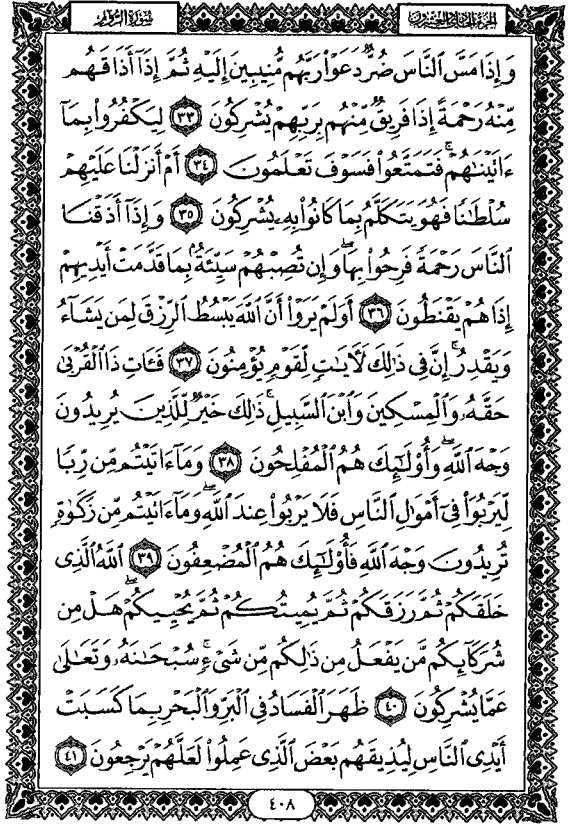 سورة الروم
الجزء الحادي والعشرون
وَإِذَا مَسَّ ٱلنَّاسَ ضُرٌّ دَعَوْا۟ رَبَّهُم مُّنِيبِينَ إِلَيْهِ ثُمَّ إِذَآ أَذَاقَهُم
مِّنْهُ رَحْمَةً إِذَا فَرِيقٌ مِّنْهُم بِرَبِّهِمْ يُشْرِكُونَ ٣٣ لِيَكْفُرُوا۟ بِمَآ
ءَاتَيْنَٰهُمْ ۚ فَتَمَتَّعُوا۟ فَسَوْفَ تَعْلَمُونَ ٣٤ أَمْ أَنزَلْنَا عَلَيْهِمْ
سُلْطَٰنًا فَهُوَ يَتَكَلَّمُ بِمَا كَانُوا۟ بِهِۦ يُشْرِكُونَ ٣٥ وَإِذَآ أَذَقْنَا
ٱلنَّاسَ رَحْمَةً فَرِحُوا۟ بِهَا ۖ وَإِن تُصِبْهُمْ سَيِّئَةٌۢ بِمَا قَدَّمَتْ أَيْدِيهِمْ
إِذَا هُمْ يَقْنَطُونَ ٣٦ أَوَلَمْ يَرَوْا۟ أَنَّ ٱللَّهَ يَبْسُطُ ٱلرِّزْقَ لِمَن يَشَآءُ
وَيَقْدِرُ ۚ إِنَّ فِى ذَٰلِكَ لَءَايَٰتٍ لِّقَوْمٍ يُؤْمِنُونَ ٣٧ فَـَٔاتِ ذَا ٱلْقُرْبَىٰ
حَقَّهُۥ وَٱلْمِسْكِينَ وَٱبْنَ ٱلسَّبِيلِ ۚ ذَٰلِكَ خَيْرٌ لِّلَّذِينَ يُرِيدُونَ
وَجْهَ ٱللَّهِ ۖ وَأُو۟لَٰٓئِكَ هُمُ ٱلْمُفْلِحُونَ ٣٨ وَمَآ ءَاتَيْتُم مِّن رِّبًا
لِّيَرْبُوَا۟ فِىٓ أَمْوَٰلِ ٱلنَّاسِ فَلَا يَرْبُوا۟ عِندَ ٱللَّهِ ۖ وَمَآ ءَاتَيْتُم مِّن زَكَوٰةٍ
تُرِيدُونَ وَجْهَ ٱللَّهِ فَأُو۟لَٰٓئِكَ هُمُ ٱلْمُضْعِفُونَ ٣٩ ٱللَّهُ ٱلَّذِى
خَلَقَكُمْ ثُمَّ رَزَقَكُمْ ثُمَّ يُمِيتُكُمْ ثُمَّ يُحْيِيكُمْ ۖ هَلْ مِن
شُرَكَآئِكُم مَّن يَفْعَلُ مِن ذَٰلِكُم مِّن شَىْءٍ ۚ سُبْحَٰنَهُۥ وَتَعَٰلَىٰ
عَمَّا يُشْرِكُونَ ٤٠ ظَهَرَ ٱلْفَسَادُ فِى ٱلْبَرِّ وَٱلْبَحْرِ بِمَا كَسَبَتْ
أَيْدِى ٱلنَّاسِ لِيُذِيقَهُم بَعْضَ ٱلَّذِى عَمِلُوا۟ لَعَلَّهُمْ يَرْجِعُونَ ٤١
٤٠٨